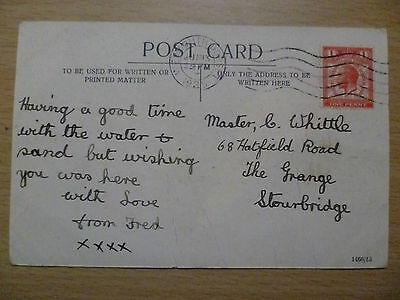 POST CARD
TO BE USED FOR WRITTEN OR
PRINTED MATTER
ONLY THE ADDRESS TO BE
WRITTEN HERE
Having a good time
with the water &
sand but wishing
you was here
with Love
from Fred
xxxx
Master, C. Whittle
68 Hatfield Road
The Grange
Stourbridge
ONE PENNY